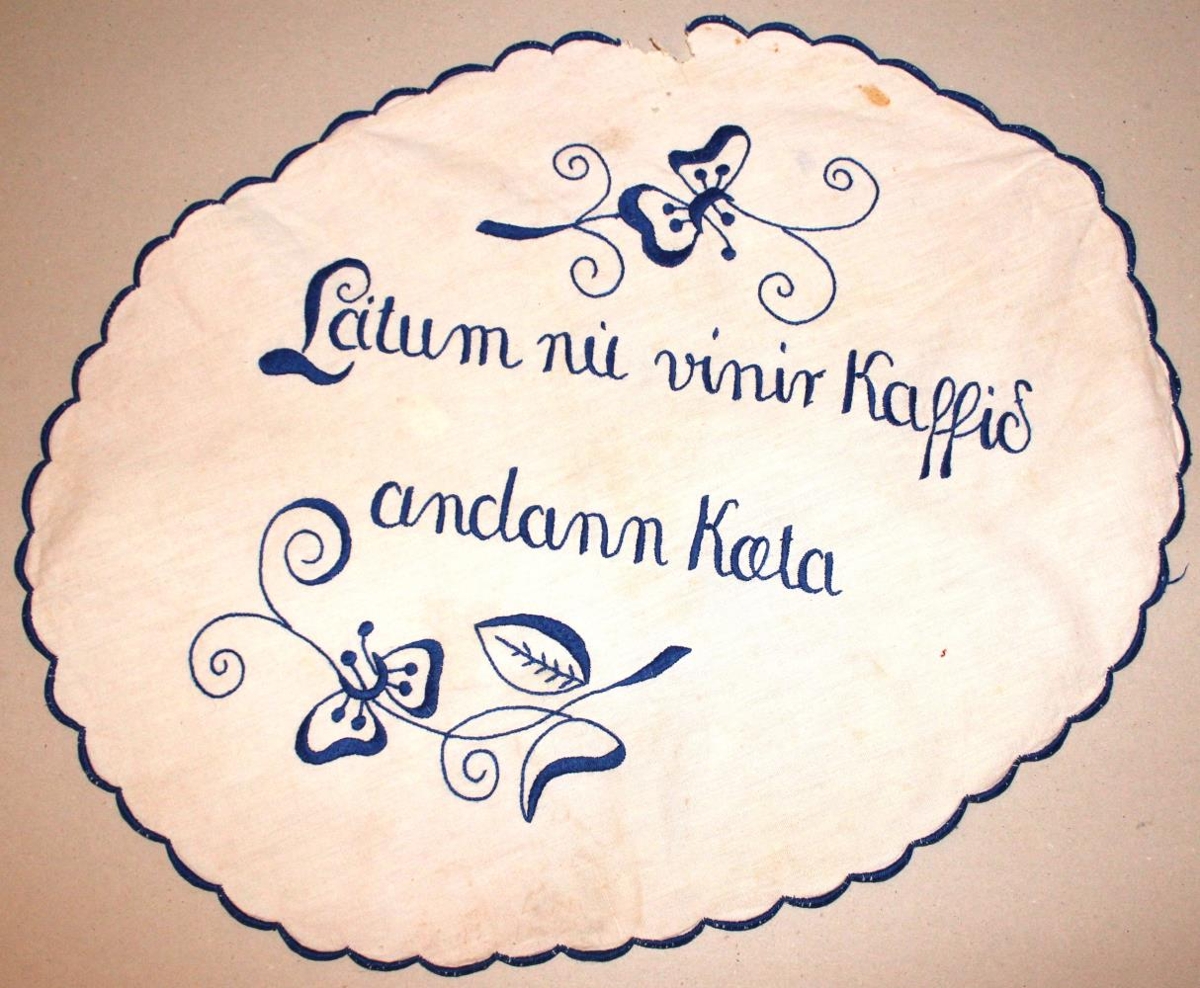 Látum nú vinir Kaffið
andann Kæta